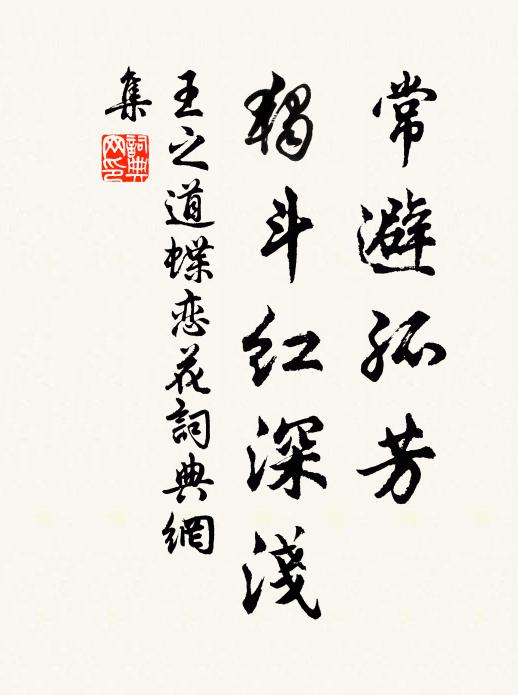 常避孤芳
独斗红深淺
王之道蝶恋花詞典網
集
詞典
网印